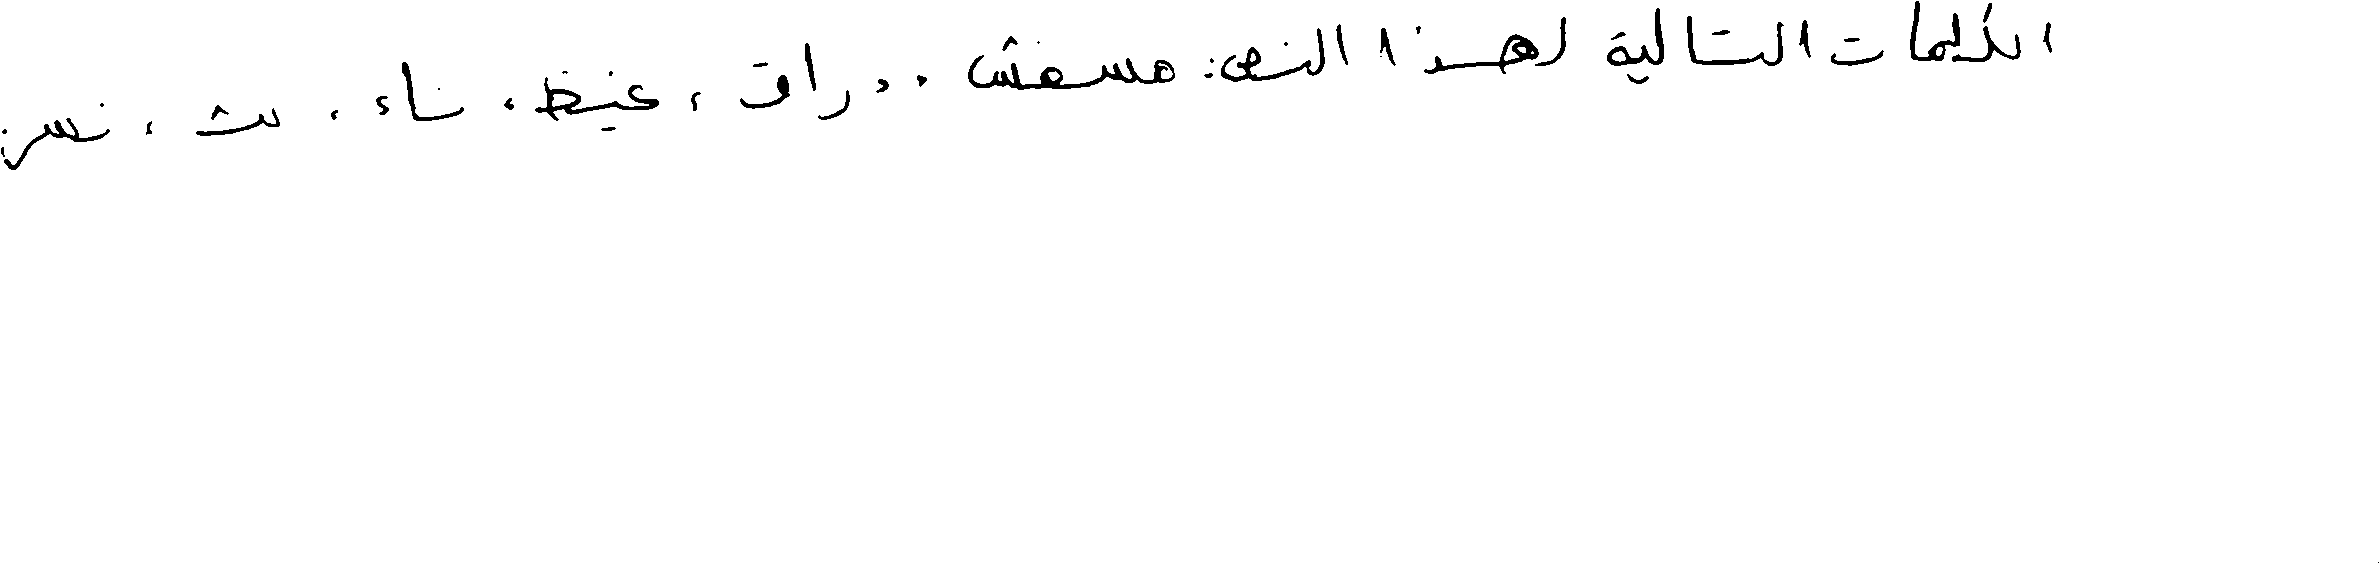 الكلمات التالية لهذا النص: مسعفش . . راق ، غيظ ، ناء ، بث ، نسر: